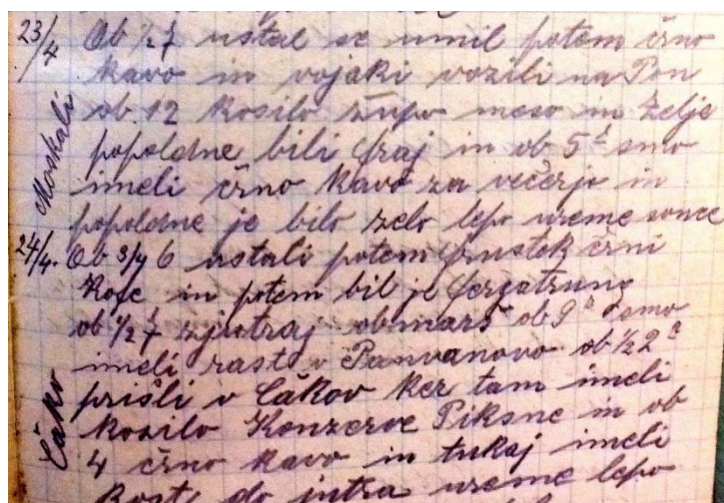 23/4 Ob 1/2 7 ustal se umil potem črno
kavo in vojaki vozili na Pon
ob 12 kosilo župo meso in zelje
popoldne bili fraj in ob 5h smo
imeli črno kavo za večerjo in
popoldne je bilo zelo lepo vreme sonce
Moskali
24/4. Ob 3/4 6 ustali potem fruštek črni
kofe in potem bil je fergatrung
ob 1/2 7 zjutraj obmarš ob 9h smo
imeli rast v Panvanovo ob 1/2 2h
prišli v Čakov ker tam imeli
kosilo Konzerve Piksne in ob
4 črno kavo in tukaj imeli
Rost do jutra vreme lepo
Čako